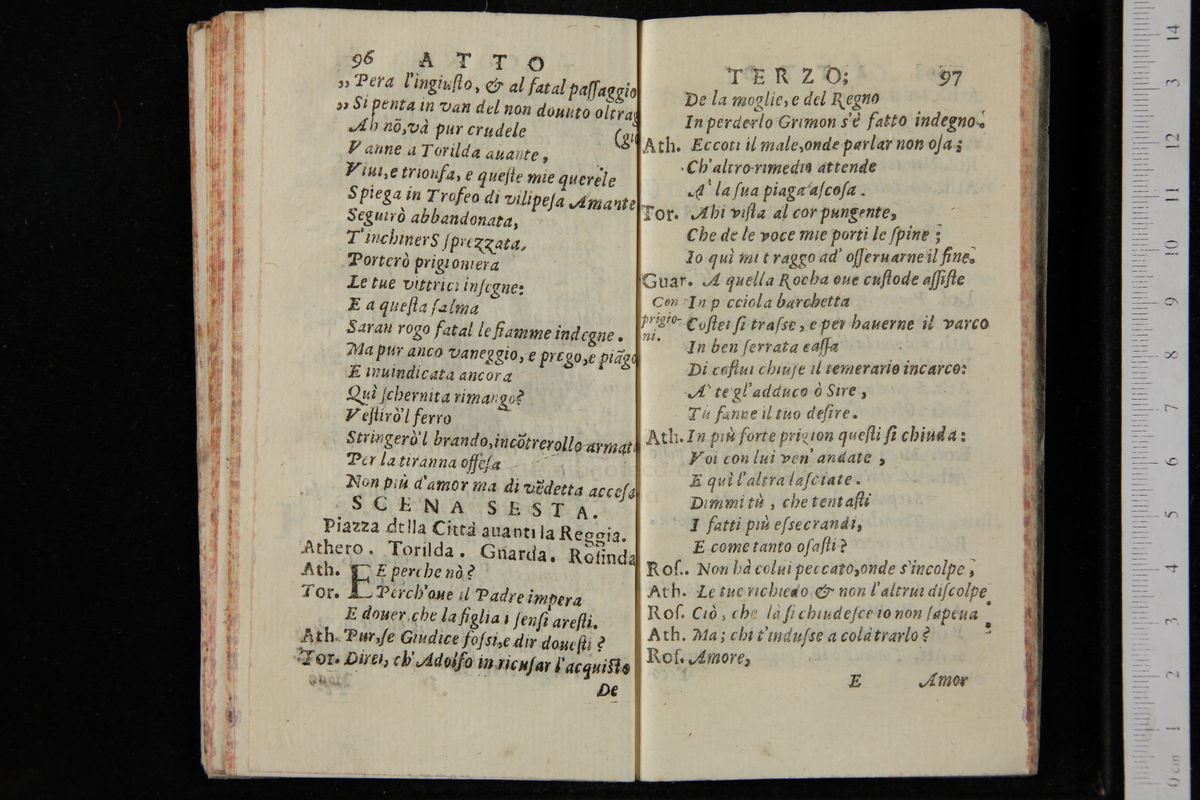 96 ATTO
„ Pera l'ingiuſto, & al fatal paſſaggio
„ Si penta in van del non douuto oltrag
Ah nõ, và pur crudele (gio
Vanne a Torilda auante,
Viui, e trionfa, e queſte mie querele
Spiega in Trofeo di vilipeſa Amante
Seguirò abbandonata,
T'inchinerS ſprezzata,
Porterò prigioniera
Le tue vittrici inſegne:
E a queſta ſalma
Saran rogo fatal le fiamme indegne.
Ma pur anco vaneggio, e prego, e piãgo
E inuindicata ancora
Quì ſchernita rimango?
Veſtirò'l ferro
Stringerò'l brando, incõtrerollo armata
Per la tiranna offeſa
Non più d'amor ma di vẽdetta acceſa
SCENA SESTA.
Piazza della Città auanti la Reggia.
Athero. Torilda. Guarda. Roſinda
Ath. E E perche nò?
Tor. Perch'oue il Padre impera
E douer, che la figlia i ſenſi areſti.
Ath. Pur, ſe Giudice foſsi, e dir doueſti?
Tor. Direi, ch'Adolfo in ricuſar l'acquiſto
De
TERZO; 97
De la moglie, e del Regno
In perderlo Grimon s'è fatto indegno.
Ath. Eccoti il male, onde parlar non oſa;
Ch'altro rimedio attende
A' la ſua piaga aſcoſa.
Tor. Ahi viſta al cor pungente,
Che de le voce mie porti le ſpine;
Io quì mi traggo ad' oſſeruarne il fine.
Guar. A quella Rocha oue cuſtode aſſiſte
Con In p cciola barchetta
prigio- Coſtei ſi traſse, e per hauerne il varco
ni. In ben ſerrata caſſa
Di coſtui chiuſe il temerario incarco:
A' te gl'adduco ò Sire,
Tù fanne il tuo deſire.
Ath. In più forte prigion queſti ſi chiuda:
Voi con lui ven' andate,
E quì l'altra laſciate.
Dimmi tù, che tentaſti
I fatti più eſsecrandi,
E come tanto oſaſti?
Roſ. Non hà colui peccato, onde s'incolpe,
Ath. Le tue richiedo, & non l'altrui diſcolpe.
Roſ. Ciò, che là ſi chiudeſce io non ſapeua.
Ath. Ma; chi t'induſse a colà trarlo?
Roſ. Amore,
E Amor